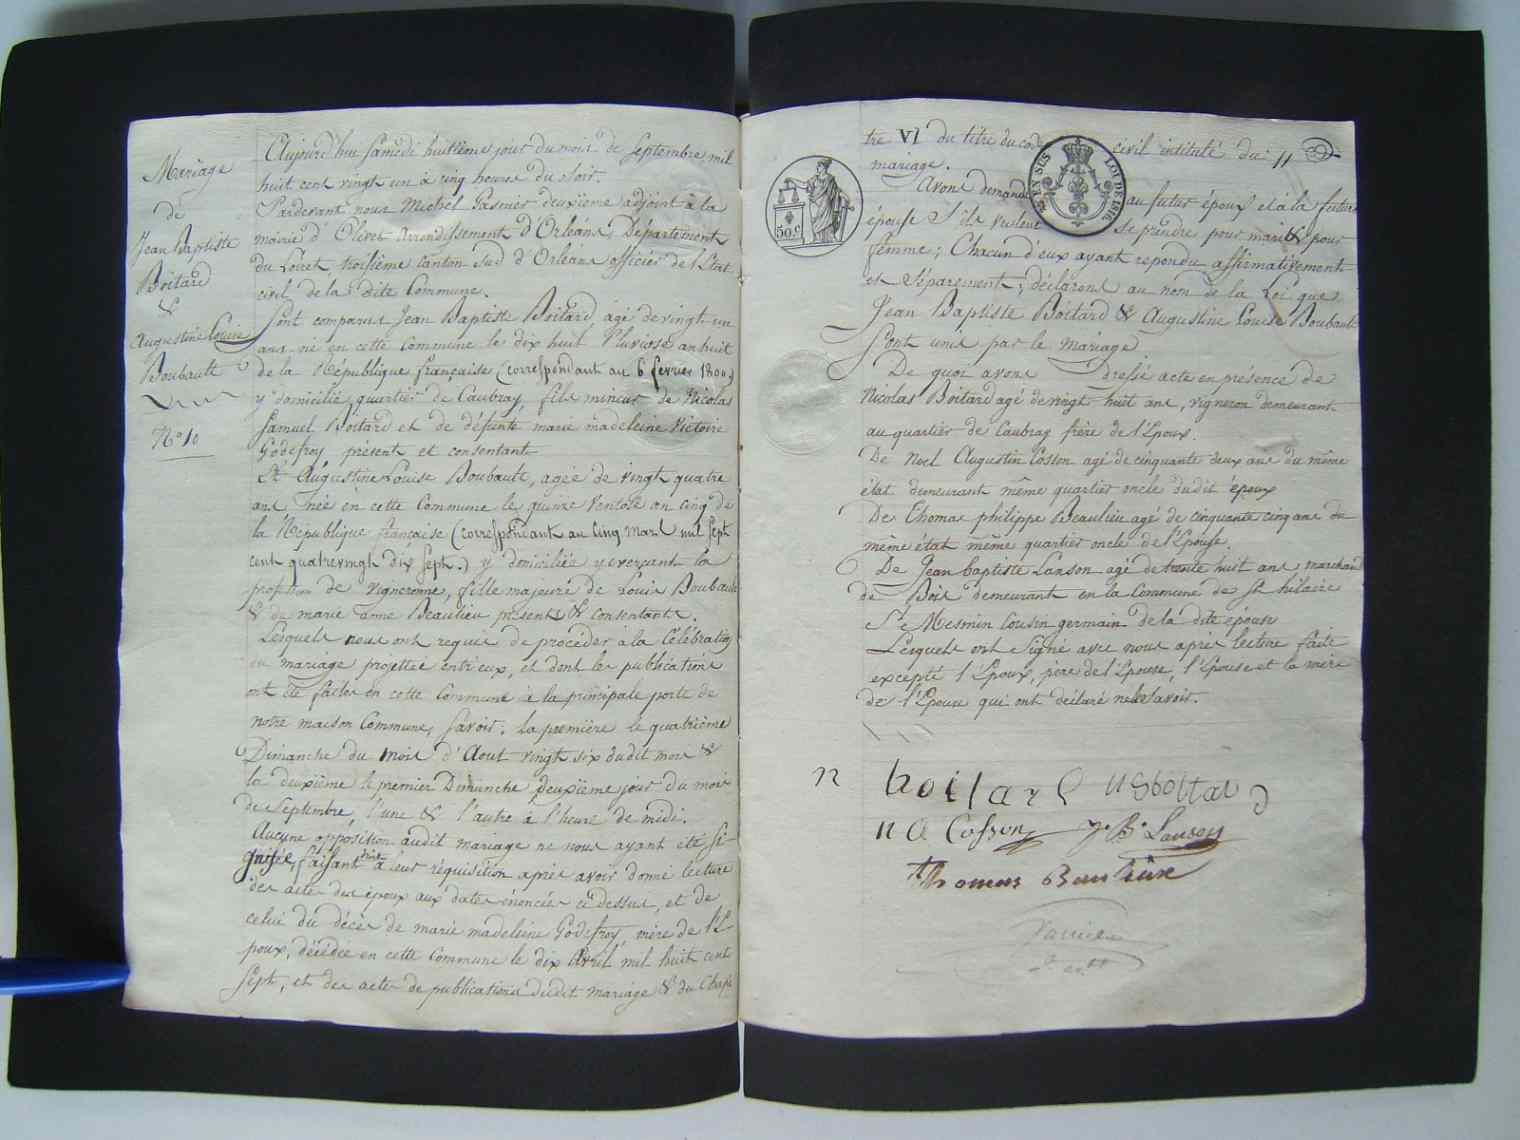 Mariage
de
Jean Baptiste
Boitard
&
Augustine Louise
Boubault
N° 10
Aujourd'hui Samedi huitième jour du mois de Septembre mil
huit cent vingt un à cinq heures du Soir.
Pardevant nous Michel deuxième adjoint à la
mairie d'Olivet arrondissement d'Orléans, Département
du Loiret, troisième canton Sud d'Orléans officier de l'Etat
civil de la dite Commune.
Sont comparus Jean Baptiste Boitard agé de vingt un
ans né en cette Commune le dix huit Pluviose an huit
de la République française (correspondant au 6 fevrier 1800)
y domicilié, quartier de Caubray fils mineur de Nicolas
Samuel Boitard et de défunte marie madeleine Victoire
Godefroy présent et consentant
Et Augustine Louise Boubault, agée de vingt quatre
ans née en cette Commune le quinze ventose an cinq de
la République française (correspondant au cinq mars mil sept
cent quatrevingt dix sept.) y domiciliée y exerçant la
profession de vigneronne, fille majeure de Louis Boubault
& de marie anne Beaulieu présents & consentants.
Lesquels nous ont requis de procéder à la Célébration
du mariage projettée entr'eux, et dont les publications
ont été faites en cette Commune à la principale porte de
notre maison Commune, Savoir. La première le quatrième
Dimanche du mois d'Aout vingt six dudit mois &
la deuxième le premier Dimanche deuxième jour du mois
de Septembre, l'une & l'autre à l'heure de midi.
Aucune opposition audit mariage ne nous ayant été Si-
gnifiée, faisant droit à leur réquisition après avoir donné lecture
des actes des époux aux dates énoncées ci dessus, et de
celui du décès de marie madeleine Godefroy mère de l'E-
poux, décédée en cette Commune le dix Avril mil huit cent
Sept, et des actes de publications dudit mariage & du Chapi
tre VI du titre du code civil intitulé du 11
mariage.
Avons demandé au futur époux et à la future
épouse S'ils veulent Se prendre pour mari & pour
femme; Chacun d'eux ayant repondu affirmativement
et Séparement; déclarons au nom de la Loi que
Jean Baptiste Boitard & Augustine Louise Boubault
Sont unis par le mariage
De quoi avons dressé acte en présence de
Nicolas Boitard agé de vingt huit ans, vigneron demeurant
au quartier de Caubray frère de l'Epoux.
De Noel Augustin Cosson agé de cinquante deux ans du même
état demeurant même quartier oncle dudit époux
De Thomas philippe Beaulieu agé de cinquante cinq ans du
même état même quartier oncle de l'Epouse.
De Jean baptiste Lanson agé de trente huit ans marchand
de Bois demeurant en la Commune de St hilaire
St Mesmin Cousin germain de la dite épouse
Lesquels ont Signé avec nous après lecture faite
excepté l'Epoux, père de l'Epouse, l'Epouse et la mère
de l'Epouse qui ont déclaré ne le Savoir.
50c
EN SUS
n boitard
N A Cosson J. B. Lanson
Thomas Beaulieu